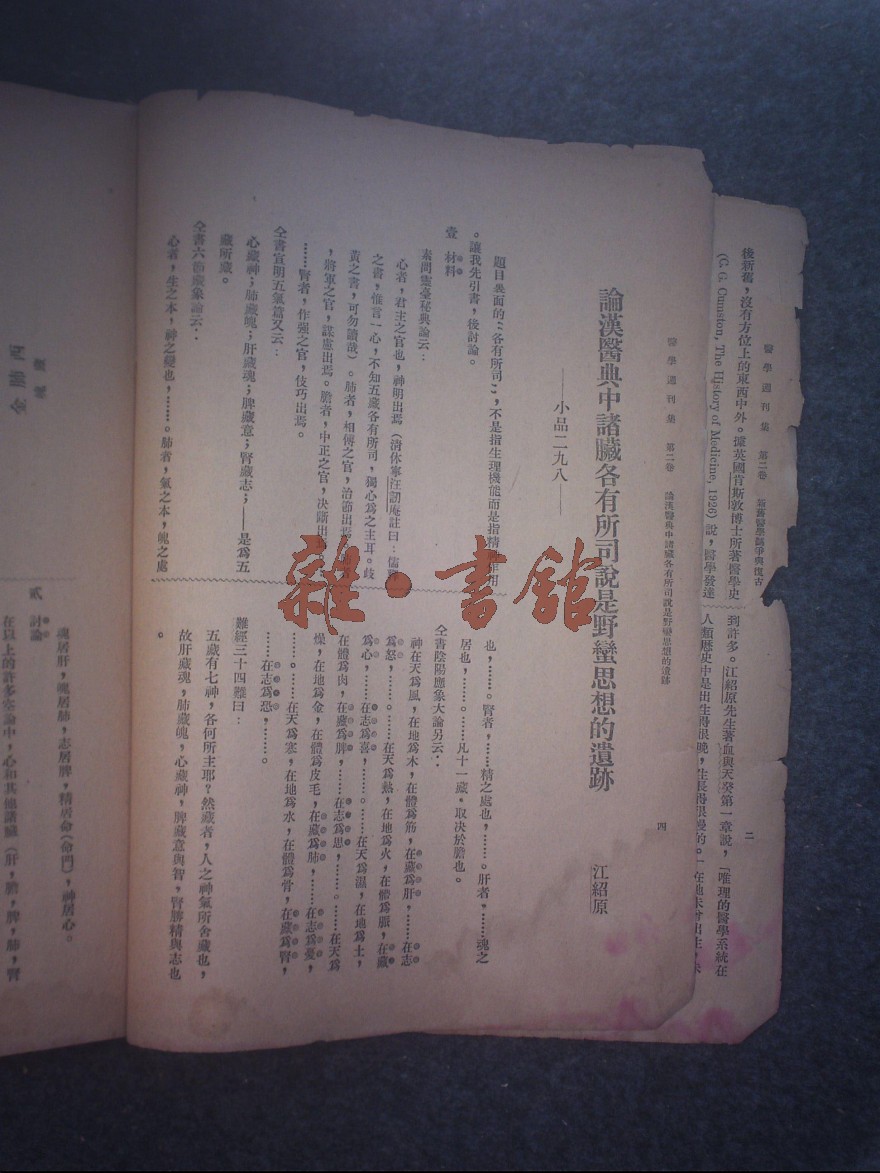 後新舊，沒有方位上的東西中外。據英國肯斯敦博士所著醫學史
(C. G. Cumston, The History of Medicine, 1926) 說，醫學發達
到許多。江紹原先生著血與天癸第一章說，「唯理的醫學系統在
人類歷史中是出生得很晚，生長得很慢的。
醫學週刊集　第二卷
二
醫學週刊集　第二卷　論漢醫典中諸臟各有所司說是野蠻思想的遺跡
四
論漢醫典中諸臟各有所司說是野蠻思想的遺跡
江紹原
——小品二九八——
題目裏面的“各有所司”，不是指生理機能而是指精
。讓我先引書，後討論。
壹　材料
素問靈臺秘典論云：
心者，君主之官也，神明出焉（清休寧汪訒庵註曰：儒
之書，惟言一心，不知五藏各有所司，獨心爲之主耳。歧
黃之書，可勿讀哉）。肺者，相傅之官，治節出焉。
，將軍之官，謀慮出焉。膽者，中正之官，决斷出
……腎者，作强之官，伎巧出焉。
仝書宣明五氣篇又云：
心藏神；肺藏魄；肝藏魂；脾藏意；腎藏志；——是爲五
藏所藏。
仝書六節藏象論云：
心者，生之本，神之變也，……。肺者，氣之本，魄之處
也，……。腎者，……精之處也，……。肝者，……魂之
居也，……。……凡十一藏，取决於膽也。
仝書陰陽應象大論另云：
神在天爲風，在地爲木，在體爲筋，在藏爲肝，……在志
爲怒，……。……在天爲熱，在地爲火，在體爲脈，在藏
爲心，……在志爲喜，……。……在天爲濕，在地爲土，
在體爲肉，在藏爲脾，……在志爲思，……。……在天爲
燥，在地爲金，在體爲皮毛，在藏爲肺，……在志爲憂，
……。……在天爲寒，在地爲水，在體爲骨，在藏爲腎，
……在志爲恐，……。
難經三十四難曰：
五藏有七神，各何所主耶？然藏者，人之神氣所舍藏也，
故肝藏魂，肺藏魄，心藏神，脾藏意與智，腎藏精與志也
。
魂居肝，魄居肺，志居脾，精居命（命門），神居心。
貳　討論
在以上的許多
論中，心和其他諸臟（肝，膽，脾，肺，腎
雜·書館